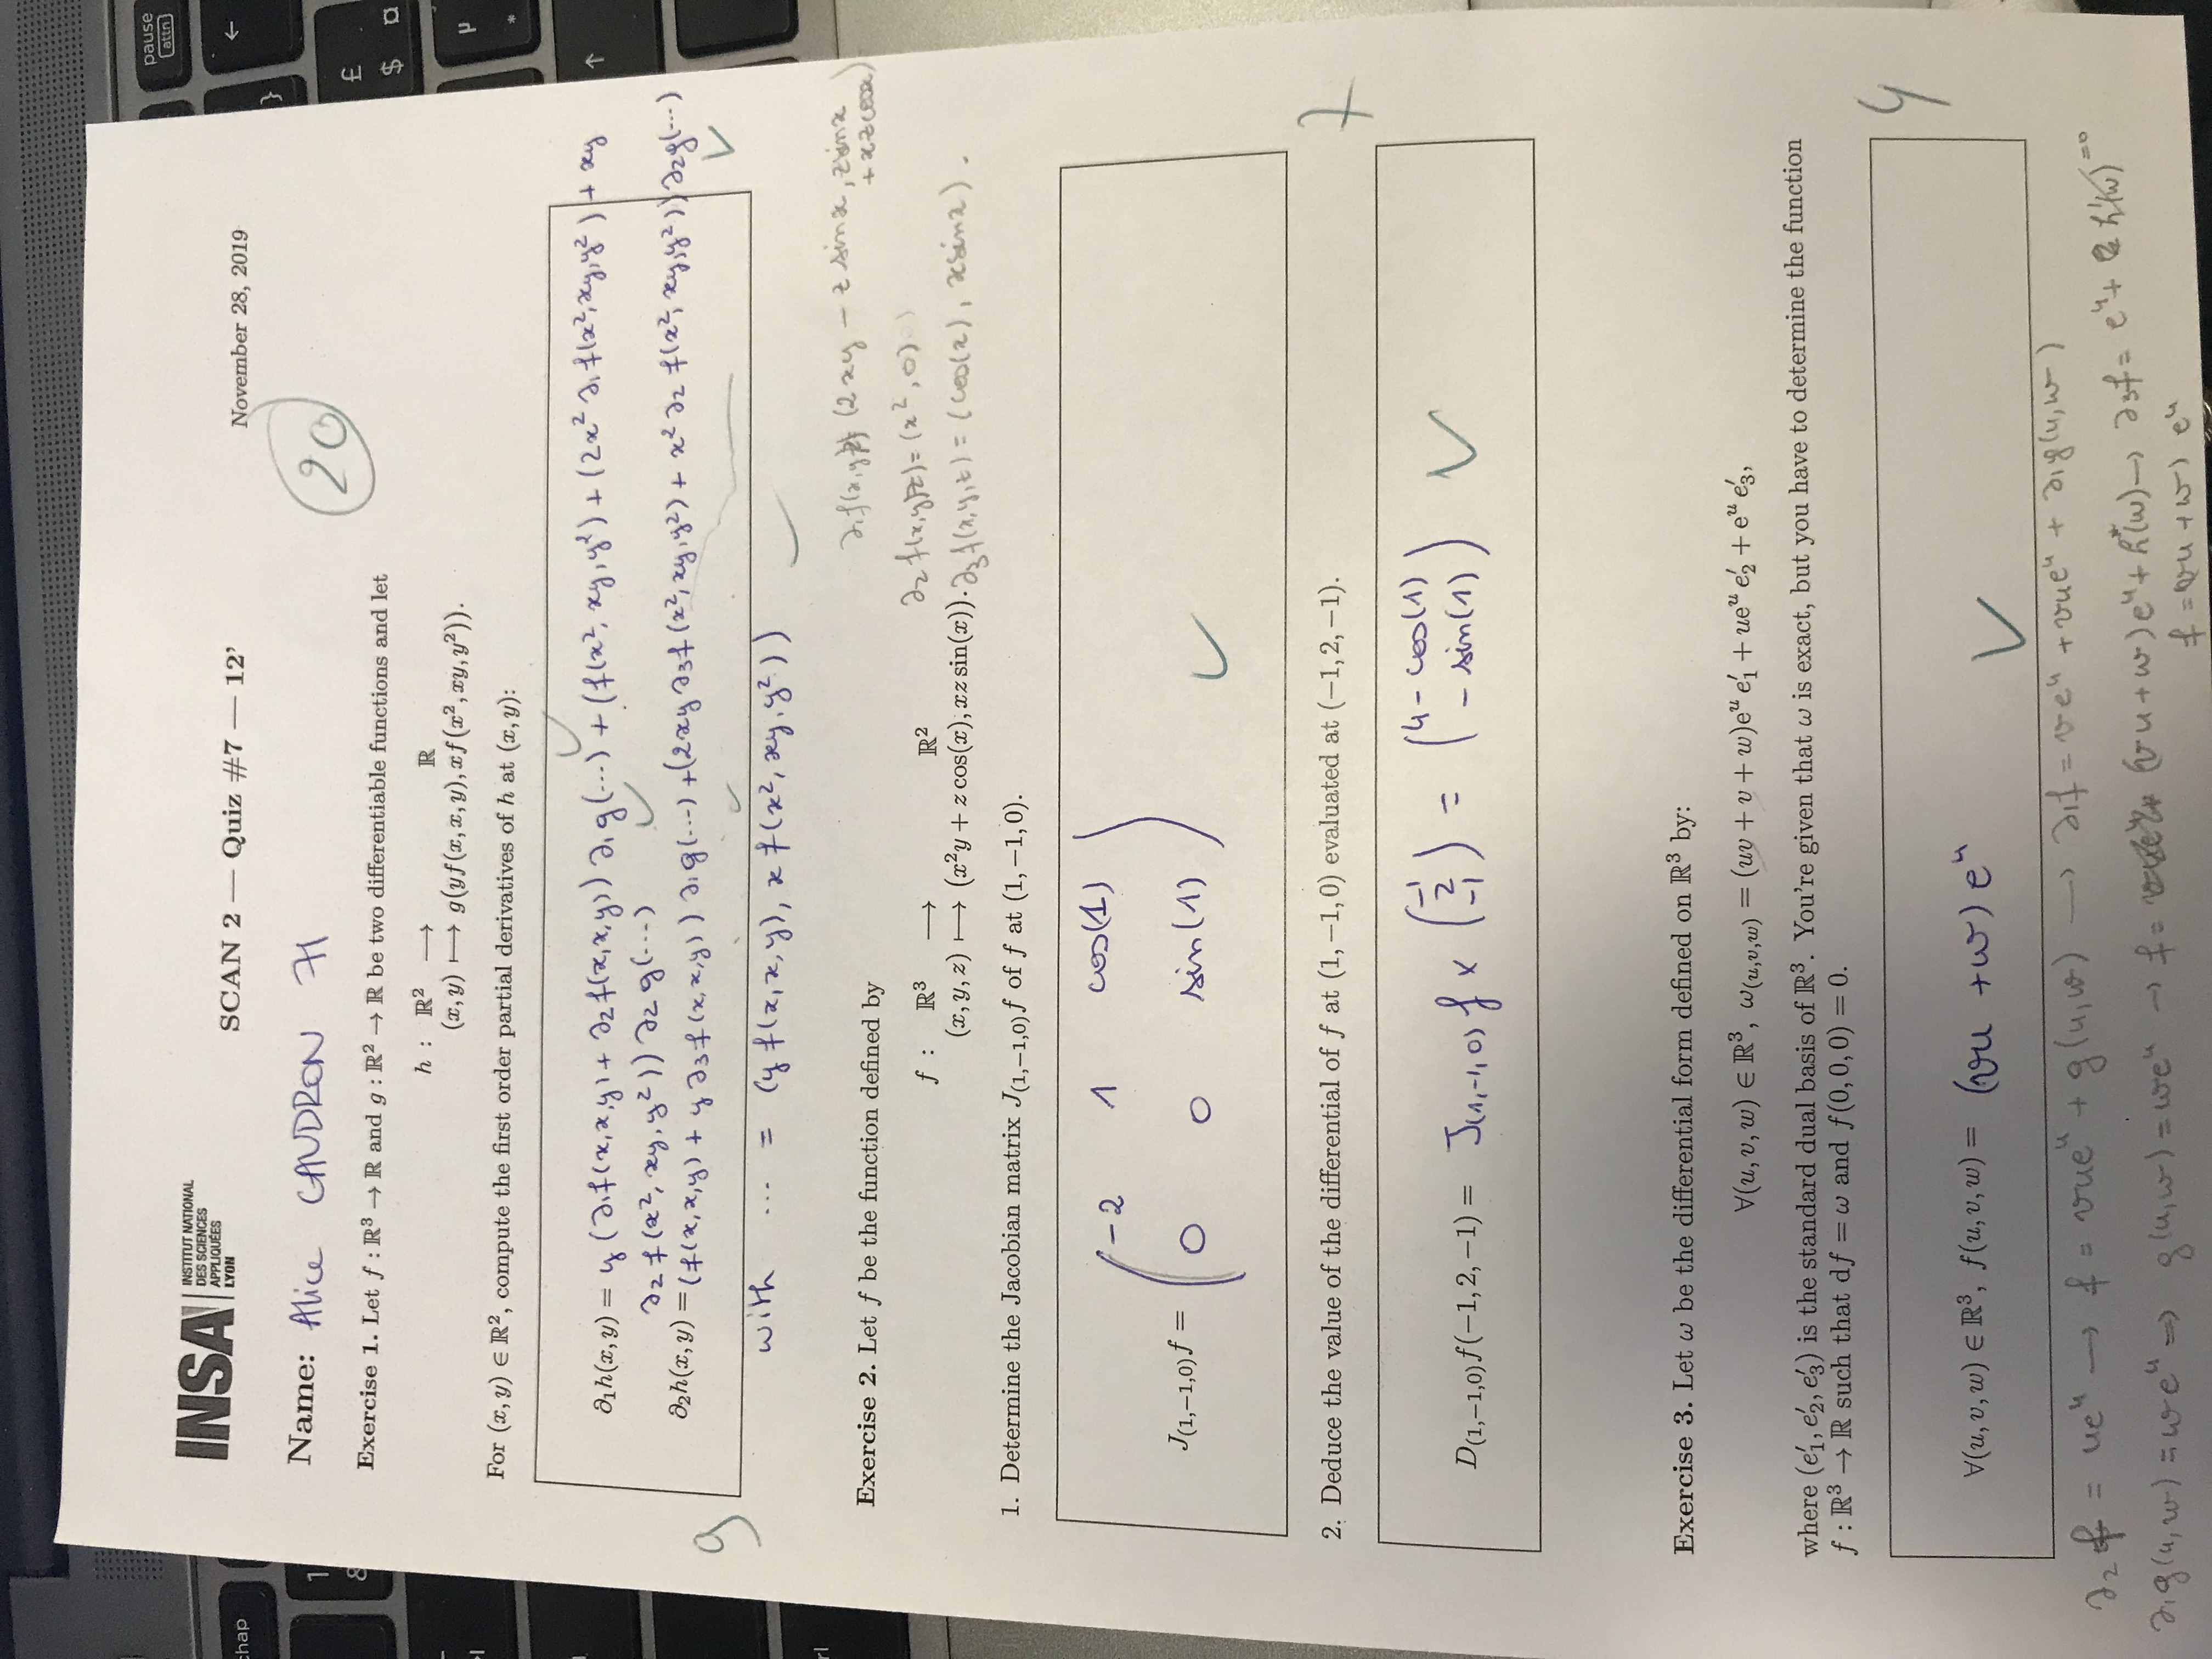 INSA
INSTITUT NATIONAL
DES SCIENCES
APPLIQUÉES
LYON
SCAN 2 — Quiz #7 — 12’
November 28, 2019
Name: Alice CAUDRON 71
20
Exercise 1. Let f : ℝ³ → ℝ and g : ℝ² → ℝ be two differentiable functions and let
h : ℝ² ⟶ ℝ
(x, y) ⟼ g(yf(x, x, y), xf(x², xy, y²)).
For (x, y) ∈ ℝ², compute the first order partial derivatives of h at (x, y):
∂₁h(x, y) = y (∂₁f(x,x,y) + ∂₂f(x,x,y)) ∂₁g(...) + (f(x², xy, y²) + (2x² ∂₁f(x², xy, y²) + xy
∂₂f(x², xy, y²)) ∂₂g(...)
∂₂h(x, y) = (f(x,x,y) + y ∂₃f(x,x,y)) ∂₁g(...) + (2xy ∂₃f(x², xy, y²) + x² ∂₂f(x², xy, y²)) ∂₂g(...)
9
with ... = (y f(x,x,y), x f(x², xy, y²))
∂₁f(x,y,z) (2xy - z sinx, z sinx
+ xz cosx)
Exercise 2. Let f be the function defined by
∂₂f(x,y,z) = (x², 0)
f : ℝ³ ⟶ ℝ²
(x, y, z) ⟼ (x²y + z cos(x), xz sin(x)).
∂₃f(x,y,z) = (cos(x), x sinx).
1. Determine the Jacobian matrix J₍₁,₋₁,₀₎f of f at (1, −1, 0).
-2 1 cos(1)
J₍₁,₋₁,₀₎f =
0 0 sin(1)
2. Deduce the value of the differential of f at (1, −1, 0) evaluated at (−1, 2, −1).
7
D₍₁,₋₁,₀₎f(−1, 2, −1) = J₍₁,₋₁,₀₎f × (-1 2 -1) = (4 - cos(1) - sin(1))
Exercise 3. Let ω be the differential form defined on ℝ³ by:
∀(u, v, w) ∈ ℝ³, ω₍u,v,w₎ = (uv + v + w)eᵘ e′₁ + ueᵘ e′₂ + eᵘ e′₃,
where (e′₁, e′₂, e′₃) is the standard dual basis of ℝ³. You’re given that ω is exact, but you have to determine the function
f : ℝ³ → ℝ such that df = ω and f(0, 0, 0) = 0.
4
∀(u, v, w) ∈ ℝ³, f(u, v, w) = (vu + w) eᵘ
∂₂f = ueᵘ → f = vueᵘ + g(u,w) → ∂₁f = veᵘ + vueᵘ + ∂₁g(u,w)
∂₁g(u,w) = weᵘ ⇒ g(u,w) = weᵘ → f = (vu+w)eᵘ + h(w) → ∂₃f = eᵘ + h'(w) =0
f = (vu + w) eᵘ
pause
attn
chap
←
}
1
&
£
$
¤
µ
*
↑